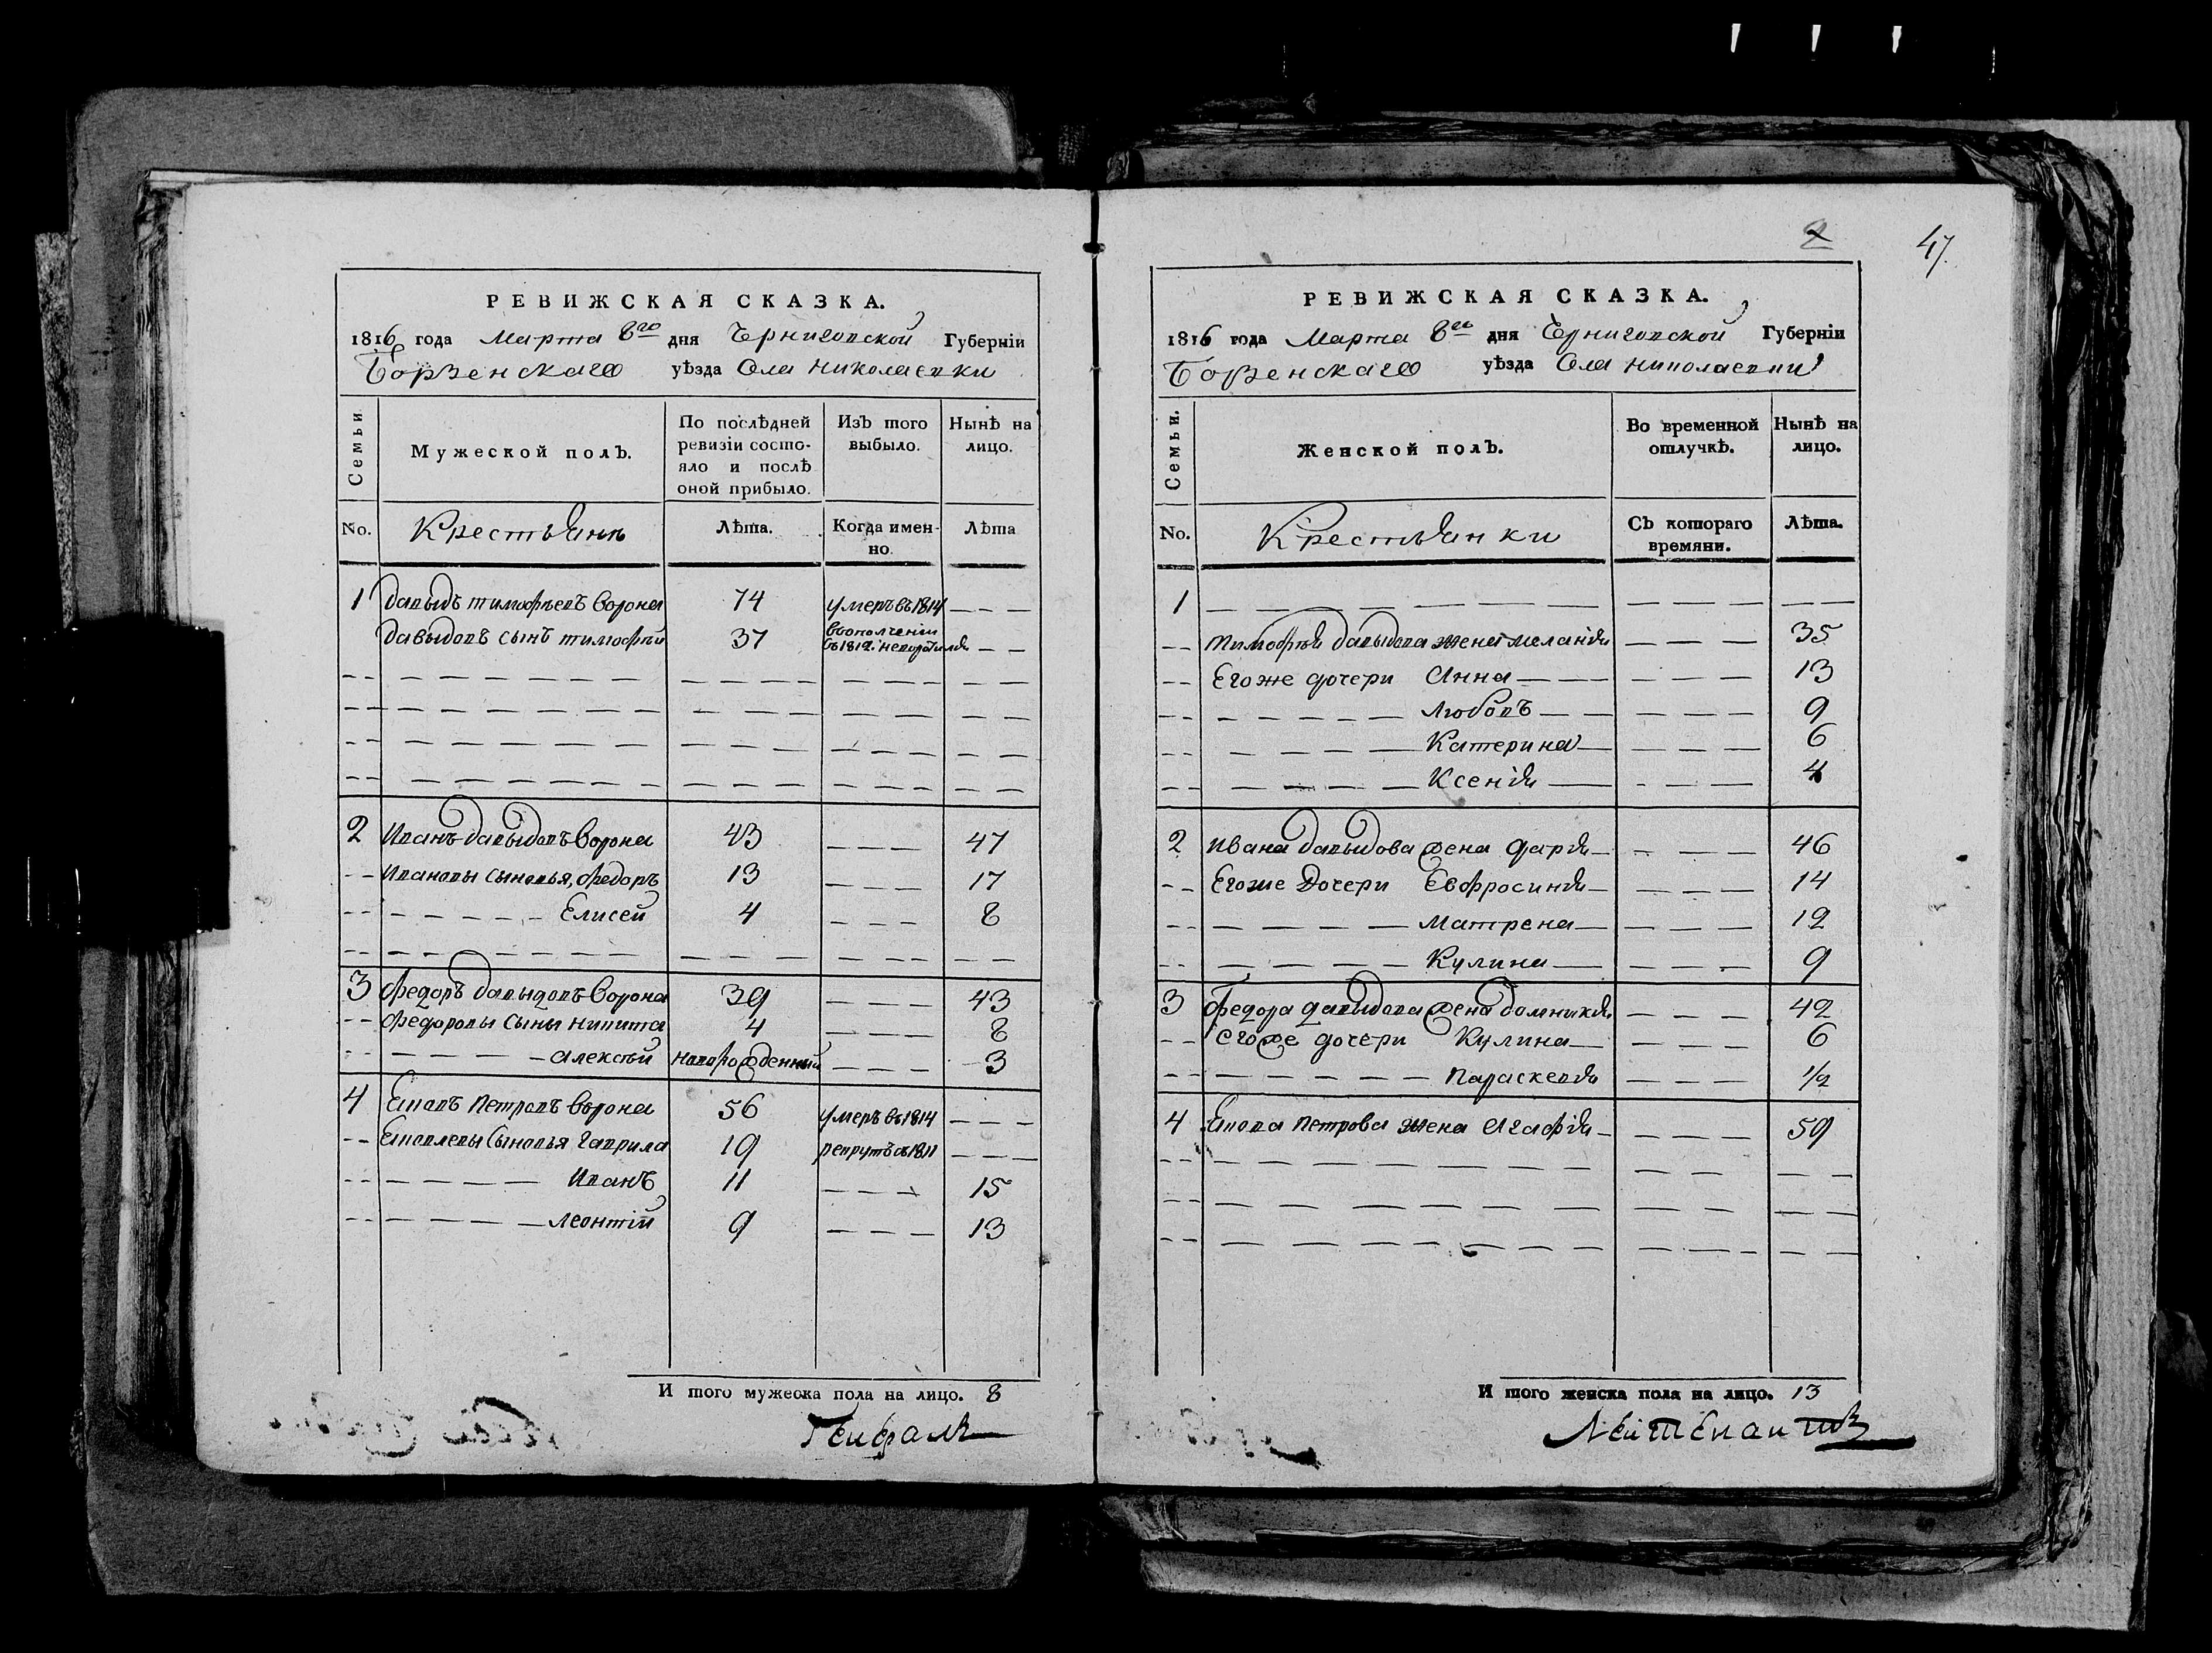 РЕВИЖСКАЯ СКАЗКА.
1816 года Марта 8го дня Черниговской Губерніи
Борзенскаго уѣзда Села Николаевки
Семьи.
Мужеской полъ.
По послѣдней ревизіи состояло и послѣ оной прибыло.
Изъ того выбыло.
Нынѣ на лицо.
No. Крестьянъ Лѣта. Когда именно. Лѣта
1 Давыдъ Тимофѣевъ Ворона 74 умеръ въ 1814
Давыдовъ сынъ Тимофѣй 37 въ ополченіи въ 1812. неворотился
2 Иванъ Давыдовъ Ворона 43 47
Ивановы сыновья, Федоръ 13 17
Елисей 4 8
3 Федоръ Давыдовъ Ворона 39 43
Федоровы сыны Никита 4 8
Алексѣй новорожденный 3
4 Петровъ Ворона 56 умеръ въ 1814
сыновья Гаврила 19 рекрутъ въ 1811
Иванъ 11 15
Леонтій 9 13
И того мужеска пола на лицо. 8
2 47.
РЕВИЖСКАЯ СКАЗКА.
1816 года Марта 8го дня Черниговской Губерніи
Борзенскаго уѣзда Села Николаевки
Семьи.
Женской полъ.
Во временной отлучкѣ.
Нынѣ на лицо.
No. Крестьянки Съ котораго времяни. Лѣта.
1
Тимофѣя Давыдова жена Меланія 35
Егоже дочери Анна 13
Любовъ 9
Катерина 6
Ксенія 4
2 Ивана Давыдова жена Дарія 46
Егоже дочери Евфросинія 14
Матрена 12
Кулина 9
3 Федора Давыдова жена Домникія 42
Егоже дочери Кулина 6
Параскевія 1/2
4 Петрова жена Агафія 59
И того женска пола на лицо. 13
Лейтенантъ